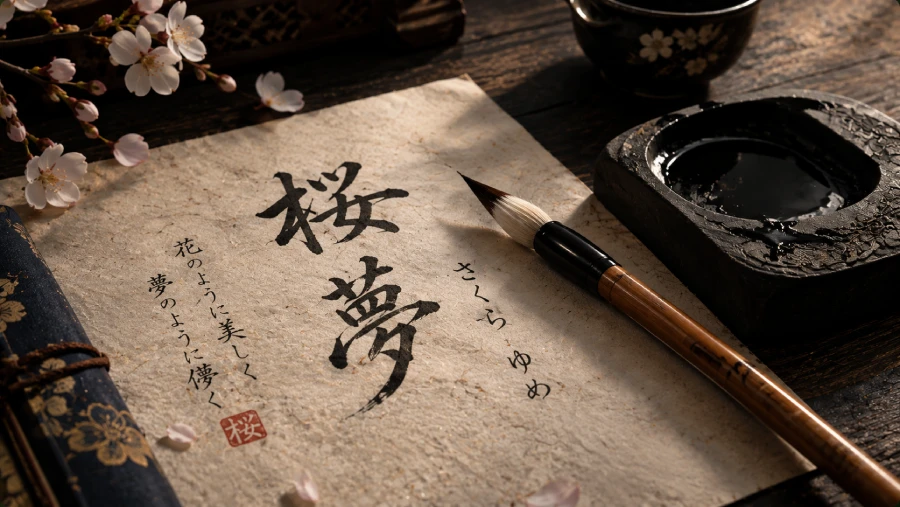 さくら ゆめ
桜夢
花のように美しく
夢のように儚く
桜